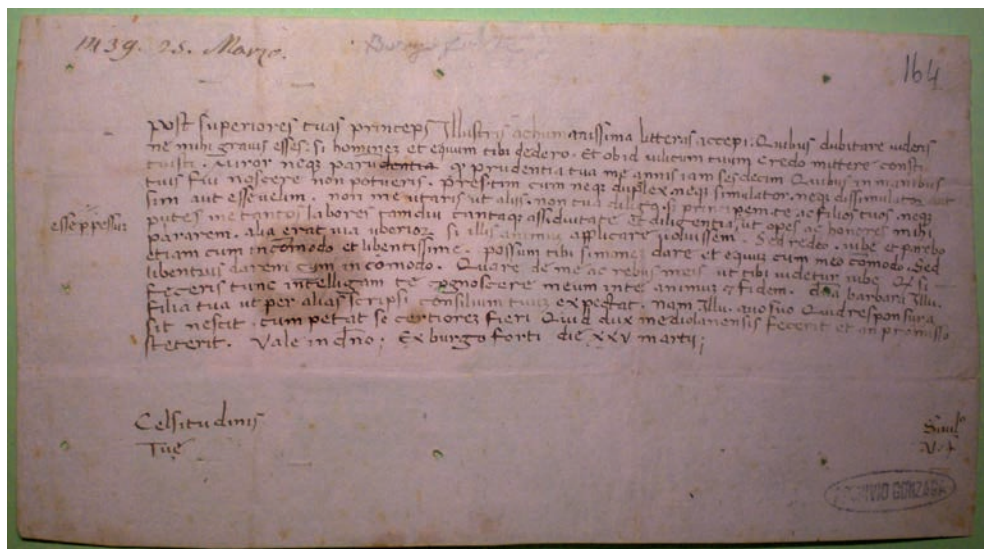 1439. 25. Marzo.
164
Post superiores tuas princeps Illustris ac humanissima litteras accepi. Quibus dubitare uideris
ne mihi gravis esses: si hominez et equum tibi dedero. Et ob id uilicum tuum credo mittere consti
tuisti. Miror neqz q prudentia tua me annis iam sesdecim Quibus in manibus
tuis fui noscere non potueris. presertim cum neqz duplex neqz simulator neqz dissimulator aut
sim aut esse uelim. non me utaris ut alijs. non tua dileg si principem te ac filios tuos. neqz
putes me tantos labores tamdiu tantaqz assiduitate et diligentia, ut opes ac honores mihi
esse ppessuz
pararem. alia erat uia uberior si illis animuz applicare uoluissem. Sed redeo. iube et parebo
etiam cum incomodo et libentissime. possum tibi dare et equuz cum meo comodo. Sed
libentius darem cum incomodo. Quare de me ac rebus meis ut tibi uidetur iube. Q si
feceris tunc intelligam te cognoscere meum in te animuz & fidem. dna barbara Illu.
filia tua ut per alias scripsi consilium tuuz expectat. nam Illu. auo suo Quid responsura
sit nescit. cum petat se certiorez fieri Quid dux mediolanensis fecerit et an promisso
steterit. Vale in dno; Ex burgo forti die XXV martii;
Celsitudinis
Tuę
V. f
ARCHIVIO GONZAGA